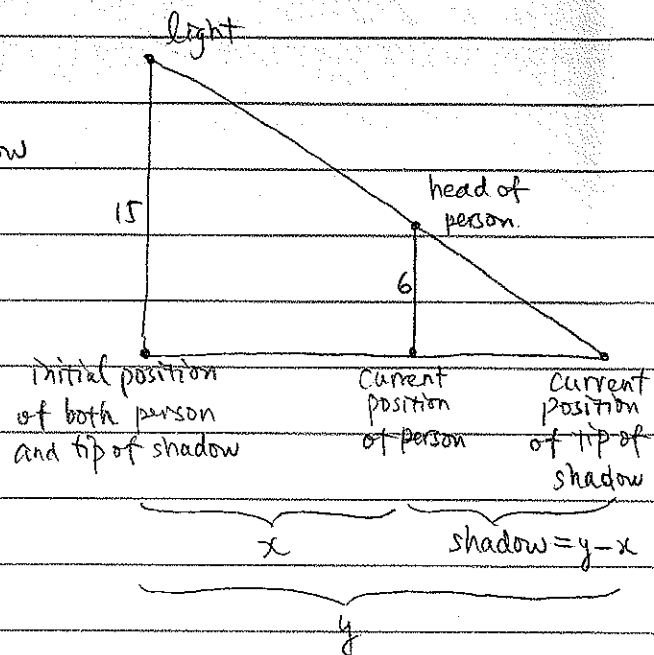 light
ow
15
head of
person.
6
initial position
of both person
and tip of shadow
current
position
of person
current
position
of tip of
shadow
x
shadow = y-x
y